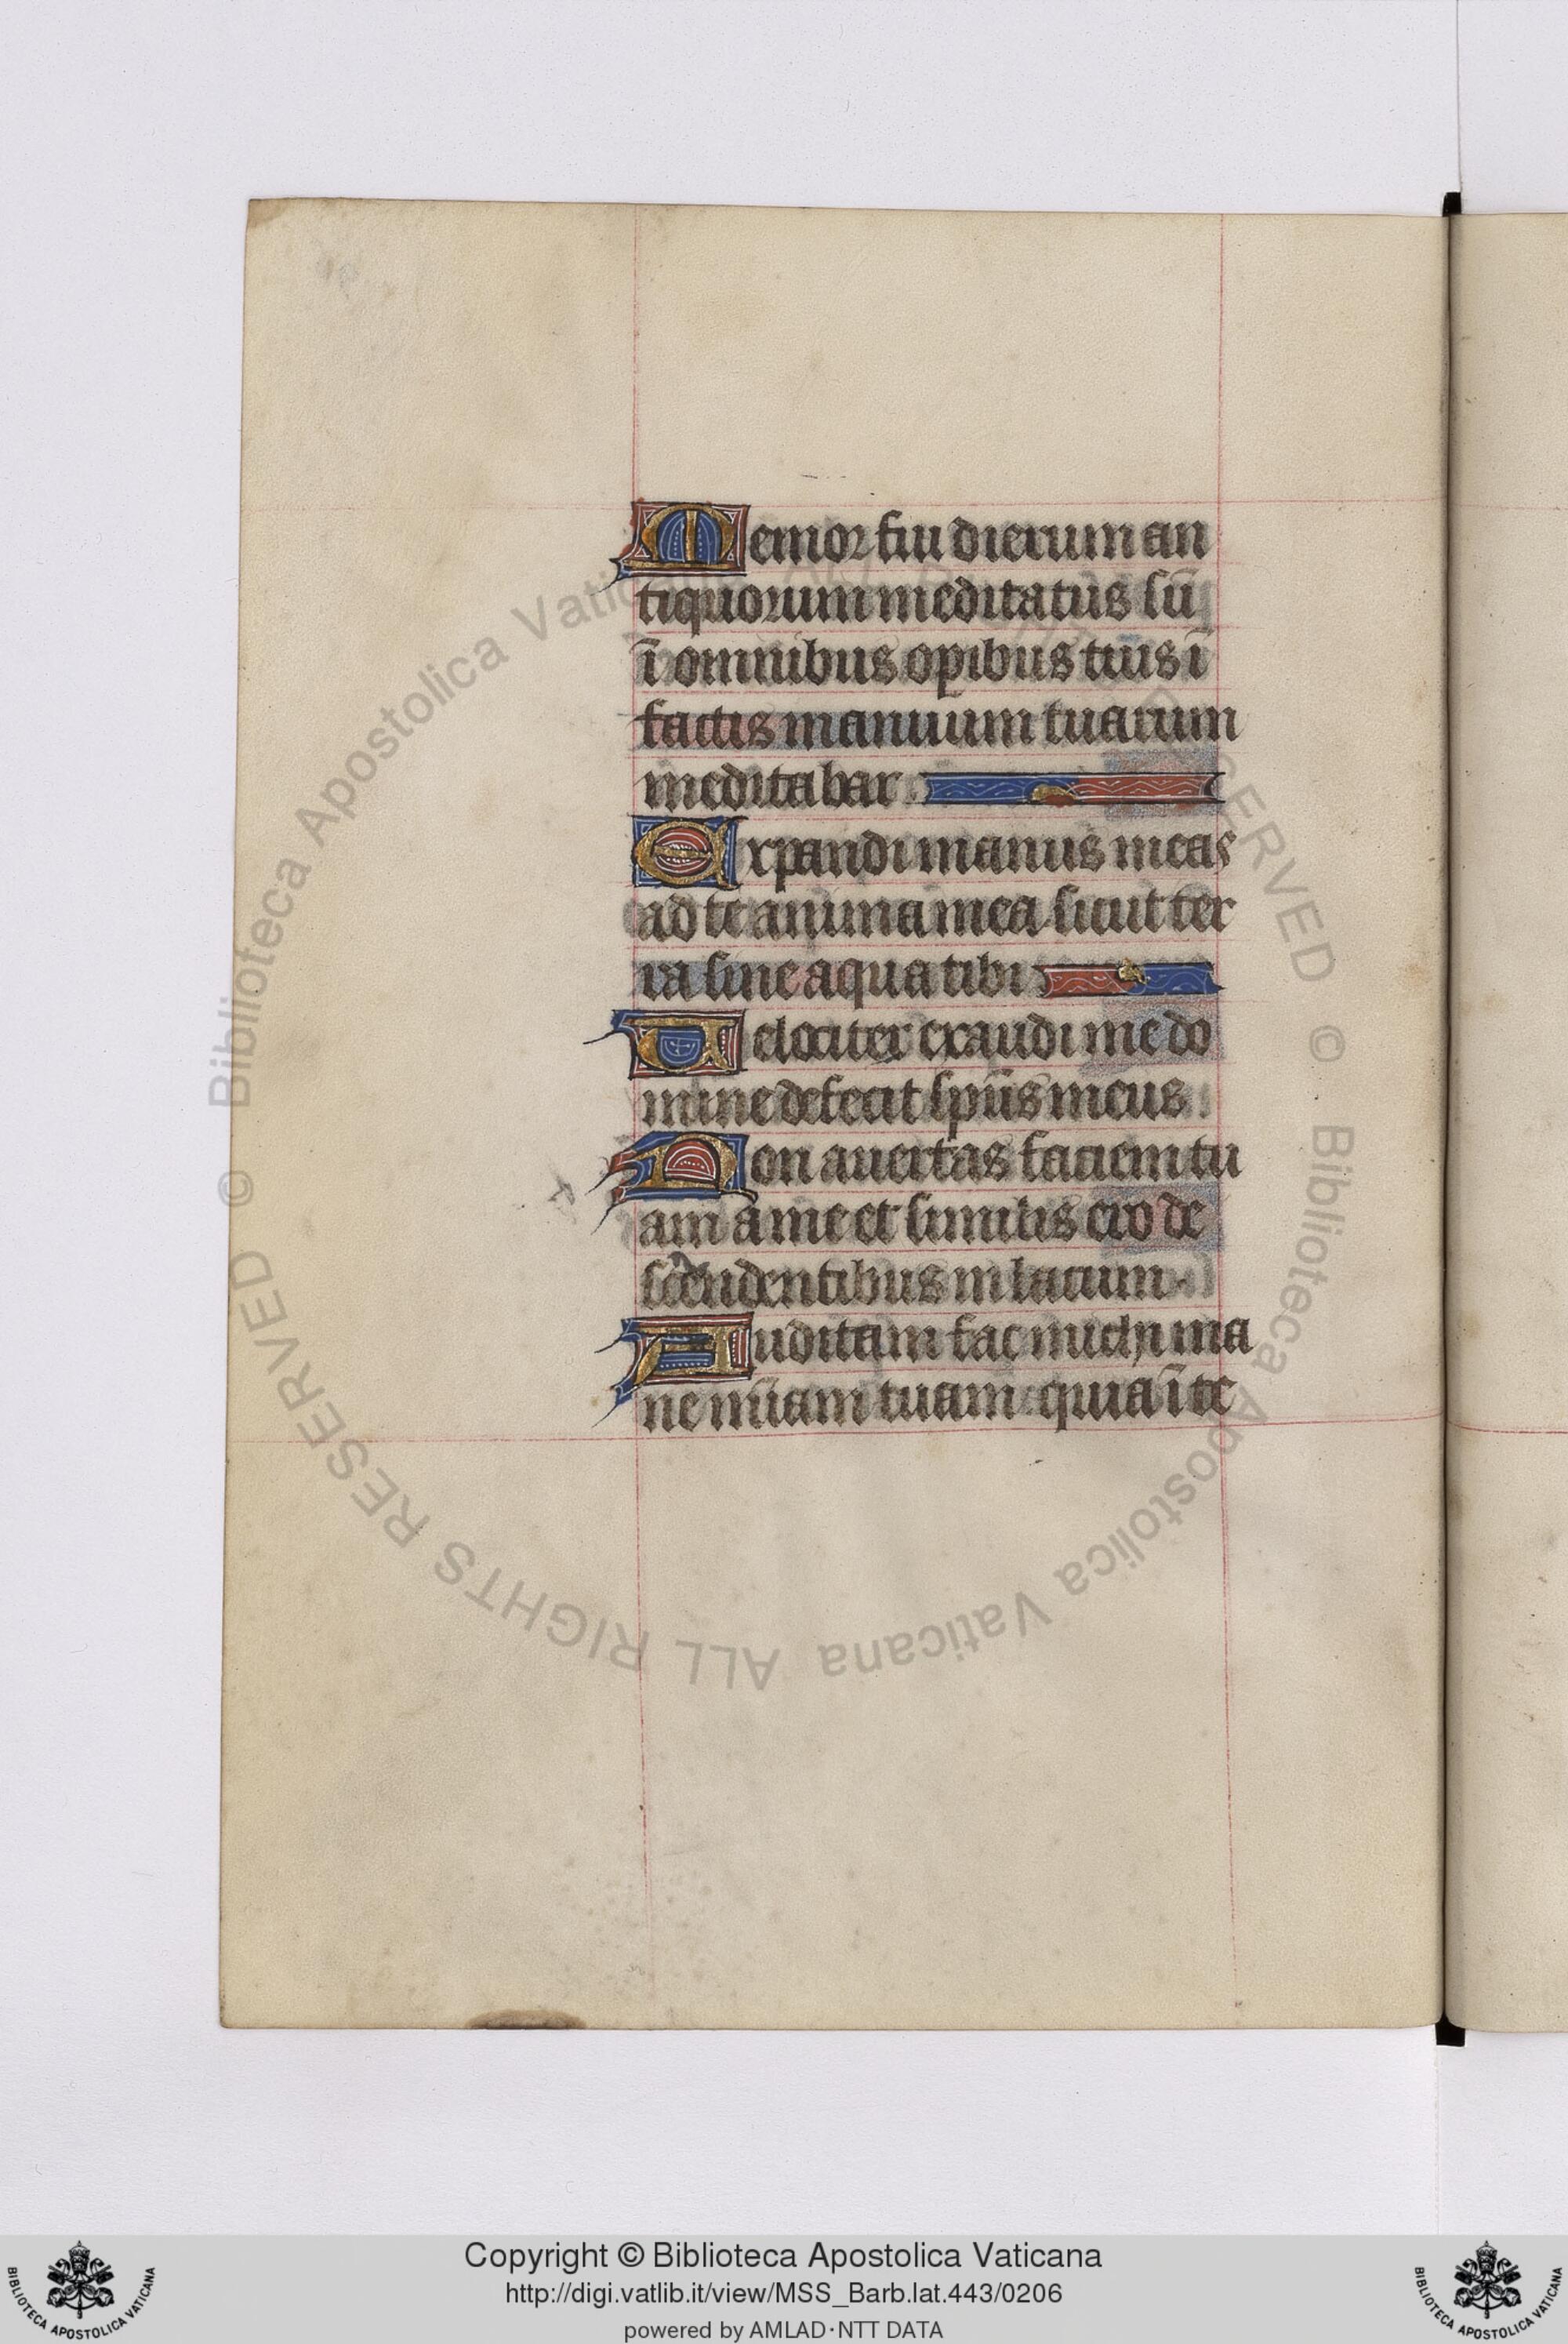 Memor fui dierum an
tiquorum meditatus sū
ī omnibus opibus tuis ī
factis manuum tuarum
meditabar
Expandi manus meas
ad te anima mea sicut ter
ra sine aqua tibi
Velociter exaudi me do
mine defecit sp̄us meus
Non avertas faciem tu
am a me et similis ero de
scendentibus in lacum.
Auditam fac michi ma
ne mīam tuam quia ī te
© Biblioteca Apostolica Vaticana ALL RIGHTS RESERVED
© Biblioteca Apostolica Vaticana ALL RIGHTS RESERVED
Copyright © Biblioteca Apostolica Vaticana
http://digi.vatlib.it/view/MSS_Barb.lat.443/0206
powered by AMLAD·NTT DATA
BIBLIOTECA APOSTOLICA VATICANA
BIBLIOTECA APOSTOLICA VATICANA